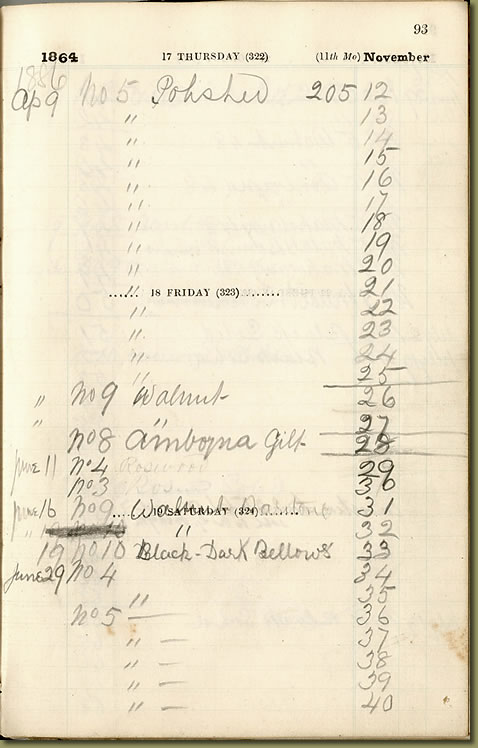 93
1864 17 THURSDAY (322) (11th Mo) November
1886
Ap 9 No 5 Polished 205 12
" 13
" 14
" 15
" 16
" 17
" 18
" 19
" 20
...... 18 FRIDAY (323)........ " 21
" 22
" 23
" 24
" 25
" no 9 Walnut 26
" " 27
no 8 Amboyna Gilt 28
June 11 no 4 Rosewood 29
no 3 30
June 16 no 9 31
19 SATURDAY (324)
" 32
19 no 10 Black-Dark Bellows 33
June 29 no 4 34
" 35
no 5 — 36
" — 37
" — 38
" — 39
" — 40